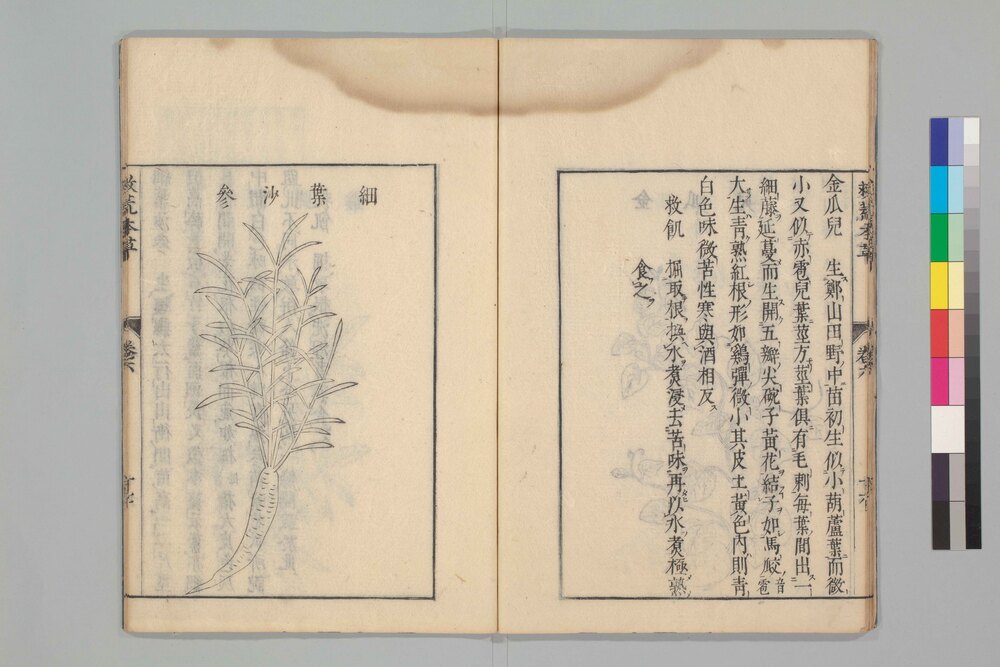 金瓜兒　生鄭山田野中苗初生似小葫蘆葉而微
小又似赤雹兒葉莖方莖葉俱有毛刺每葉間出一
細藤延蔓而生開五瓣尖碗子黃花結子如馬㼎音雹
大生青熟紅根形如鷄彈微小其皮土黃色內則青
白色味微苦性寒與酒相反
救飢　掘取根換水煮浸去苦味再以水煮極熟
食之
細葉沙參
救荒本草
卷六